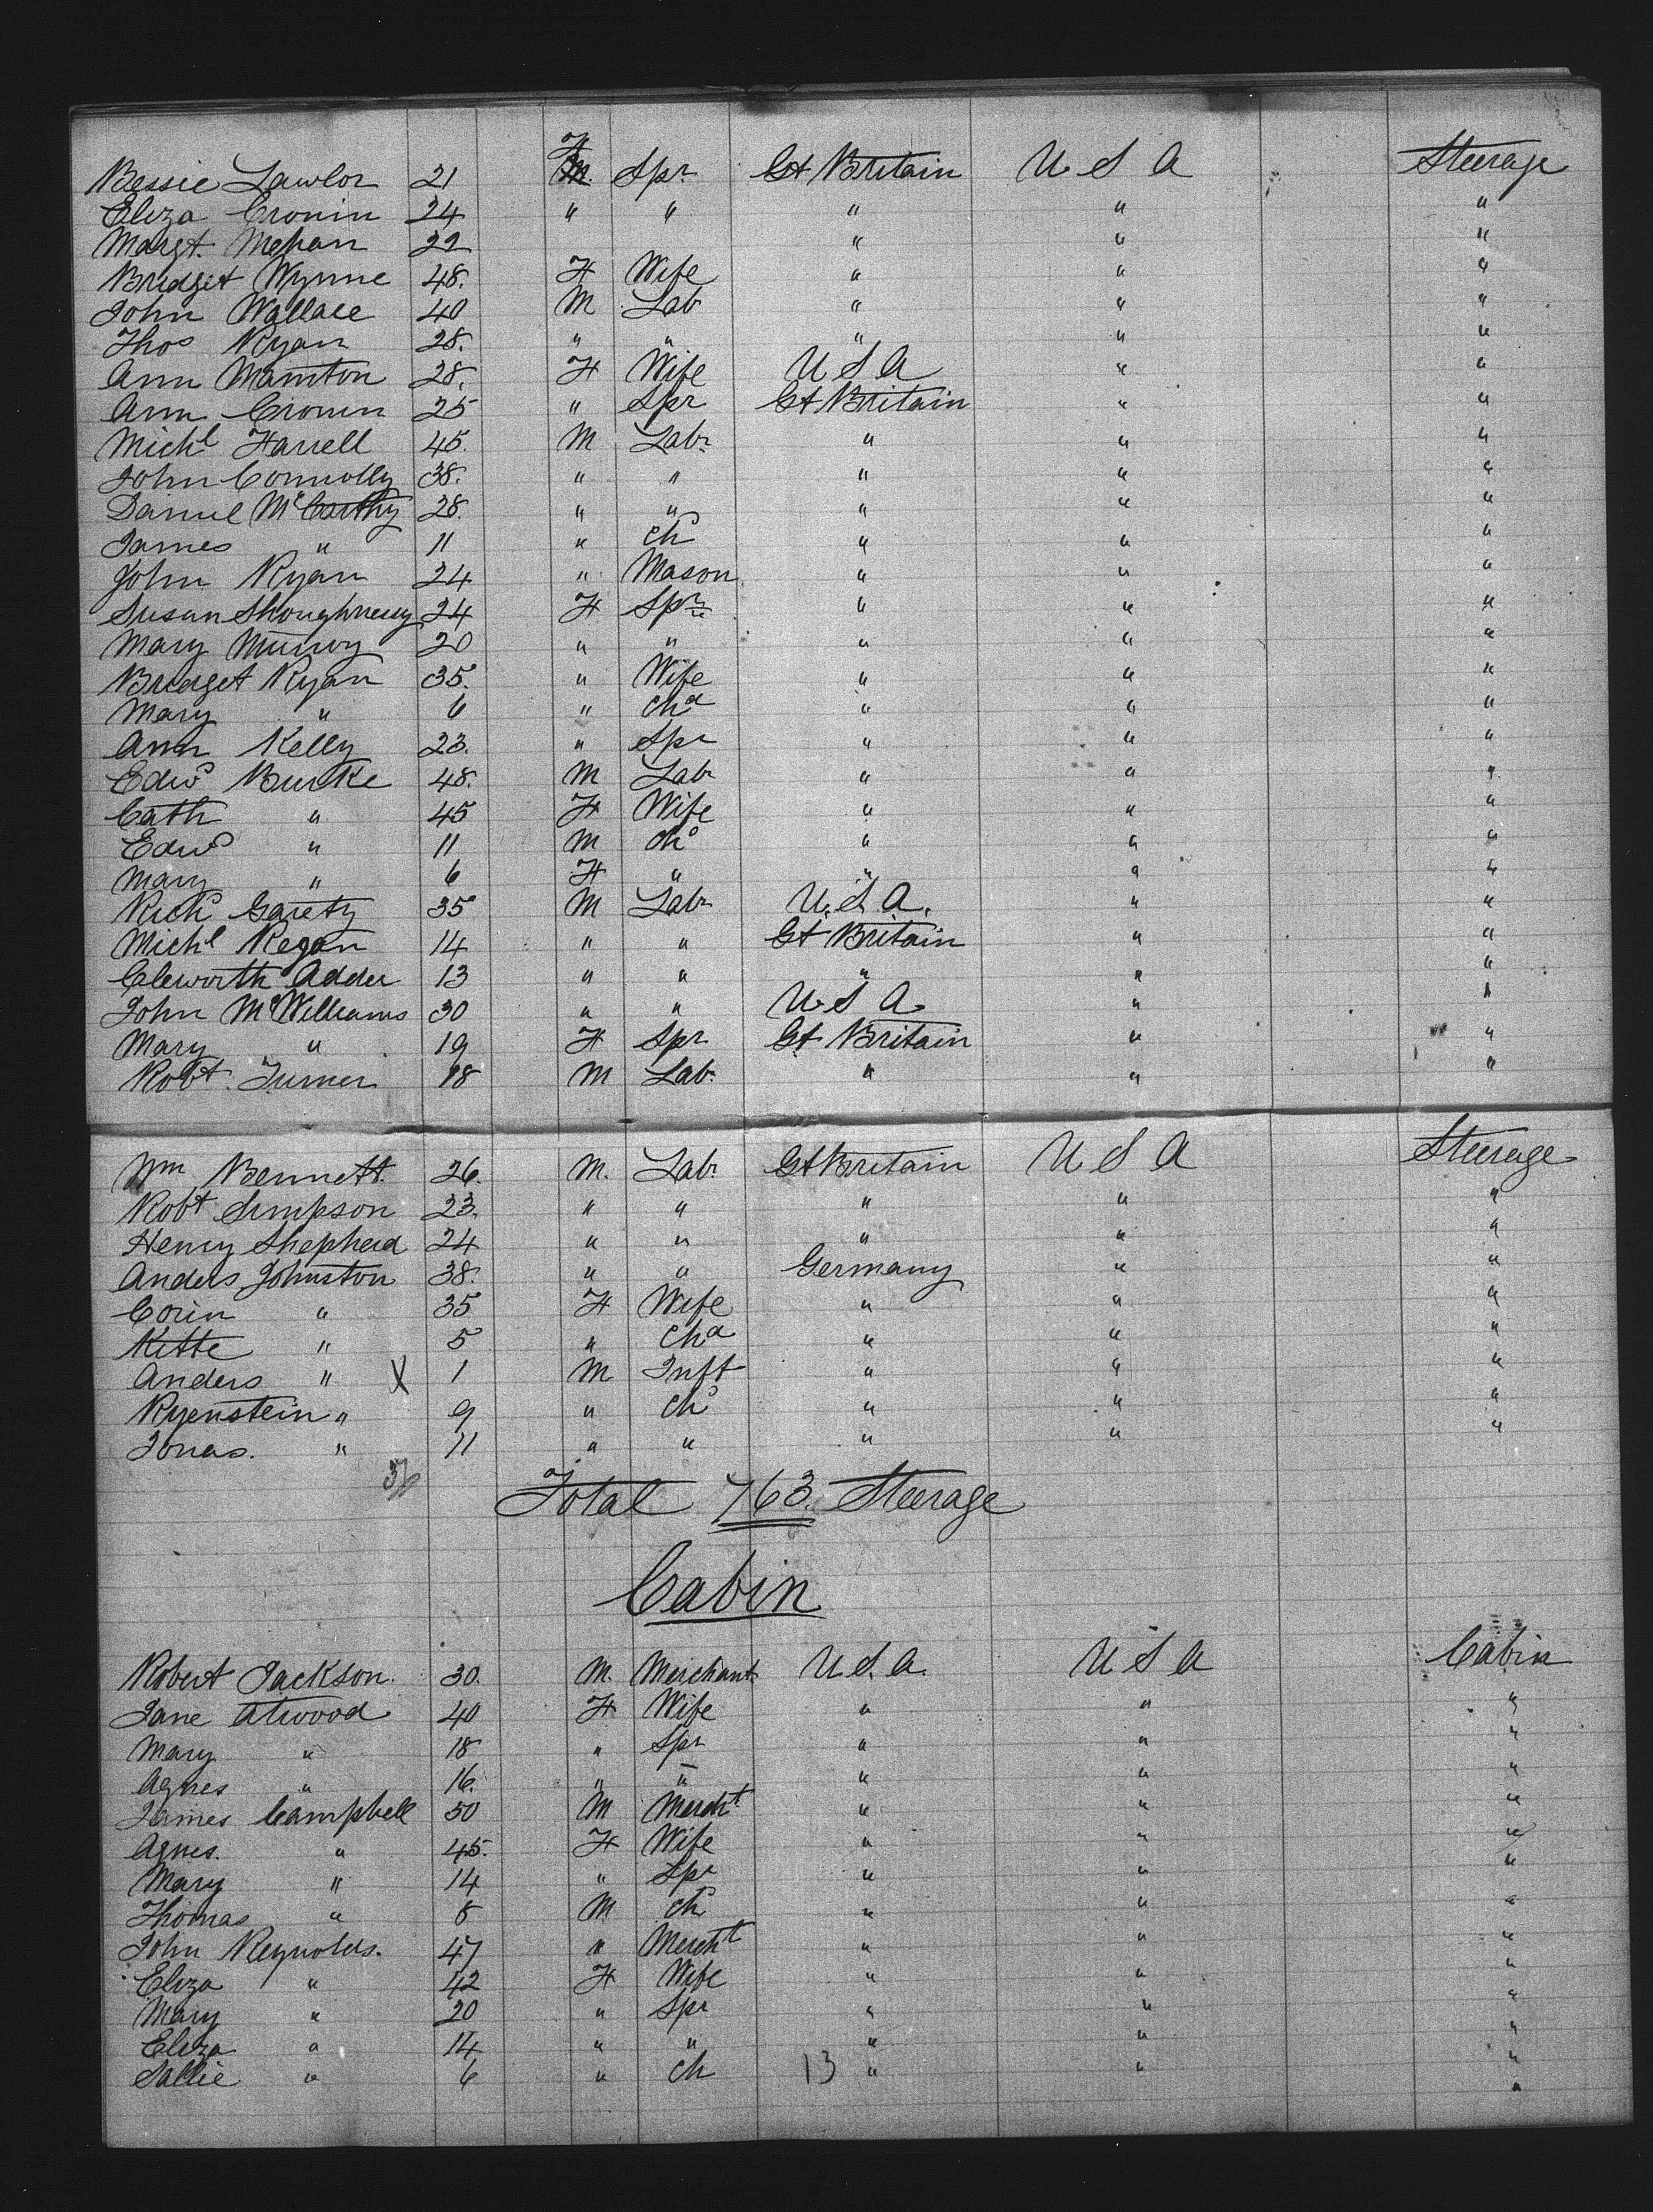 Bessie Lawlor 21 F M. Spr Gt Britain U S A Steerage
Eliza Cronin 24 " " " " "
Margt. Mehan 22 " " "
Bridget Wynne 48. F Wife " " "
John Wallace 40 M Lab " " "
Thos Ryan 28. " " " " "
Ann Mamton 28. F Wife U S A " "
Ann Cronin 25 " Spr Gt Britain " "
Michl Farrell 45. M Labr " " "
John Connolly 38. " " " " "
Daniel McCarthy 28. " " " " "
James " 11 " Ch " " "
John Ryan 24 " Mason " " "
Susan Shoughnessy 24 F Spr " " "
Mary Murroy 20 " " " " "
Bridget Ryan 35. " Wife " " "
Mary " 6 " Chd " " "
Ann Kelly 23. " Spr " " "
Edwd Burke 48. M Labr " " "
Cath " 45 F Wife " " "
Edwd " 11 M Chd " " "
Mary " 6 F " " " "
Richd Garety 35 M Labr U. S. A. " "
Michl Regan 14 " " Gt Britain " "
Cleworth Adder 13 " " " " "
John McWilliams 30 " " U. S A. " "
Mary " 19 F Spr Gt Britain " "
Robt. Turner 18 M Lab. " " "
Wm Bennett. 26. M. Labr Gt Britain U S A Steerage
Robt Simpson 23. " " " " "
Henry Shepherd 24 " " " " "
Anders Johnston 38. " " Germany " "
Corin " 35 F Wife " " "
Kitte " 5 " Chd " " "
Anders " X 1 M Inft " " "
Ryenstein " 9 " Ch " " "
Jonas. " 11 " " " " "
Total 763. Steerage
Cabin
Robert Jackson. 30. M. Merchant U S. A. U S A Cabin
Jane Atwood 40 F Wife " " "
Mary " 18 " Spr " " "
Agnes " 16. " " " " "
James Campbell 50 M Mercht " " "
Agnes. " 45. F Wife " " "
Mary " 14 " Spr " " "
Thomas " 8 M Ch " " "
John Reynolds. 47 " Mercht " " "
Eliza " 42 F Wife " " "
Mary " 20 " Spr " " "
Eliza " 14 " " " " "
Sallie " 6 " Ch 13 " " "